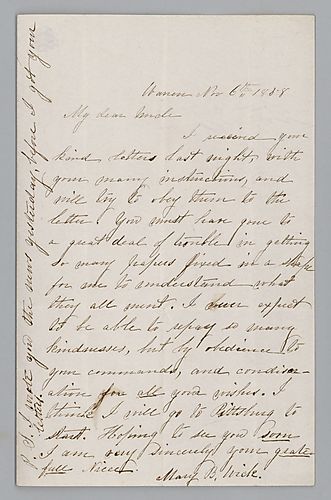 Warren Nov 6th 1888
My dear Uncle
I received your
kind letters last night, with
your many instructions, and
will try to obey them to the
letter. You must have gone to
a great deal of trouble in getting
so many papers fixed in a shape
for me to understand what
they all ment. I never expect
to be able to repay so many
kindnesses, but by obedience to
your commands, and consider-
ation for all your wishes. I
think I will go to Pittsburg to
start. Hoping to see you soon
I am very Sincerely your grate-
full Niece.
Mary B. Wick.
P. S. I wrote you the news yesterday, before I got your
letter.